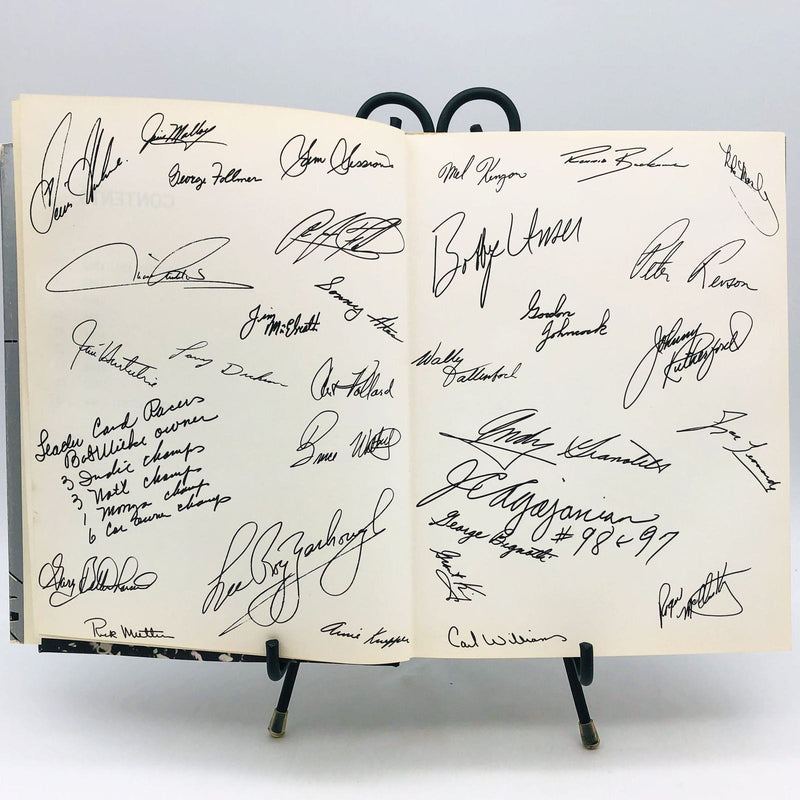 Jim Malloy
George Follmer
Sam Sessions
A.J. Foyt
Sonny Ates
Jim
McElreath
Jim Hurtubise
Larry Dickson
Art Pollard
Leader Card Racers
Bob Wilke owner
3 Indie champs
3 Natl champs
1 Monza champ
6 Car owner champ
Bruce Walkup
Gary Bettenhausen
Lee Roy Yarbrough
Rick Muther
Arnie Knepper
Mel Kenyon
Ronnie Bucknum
Bobby Unser
Peter Revson
Gordon
Johncock
Wally
Dallenbach
Johnny
Rutherford
Andy Granatelli
J C Agajanian
#98 & 97
George Bignotti
Grant King
Roger McCluskey
Carl Williams